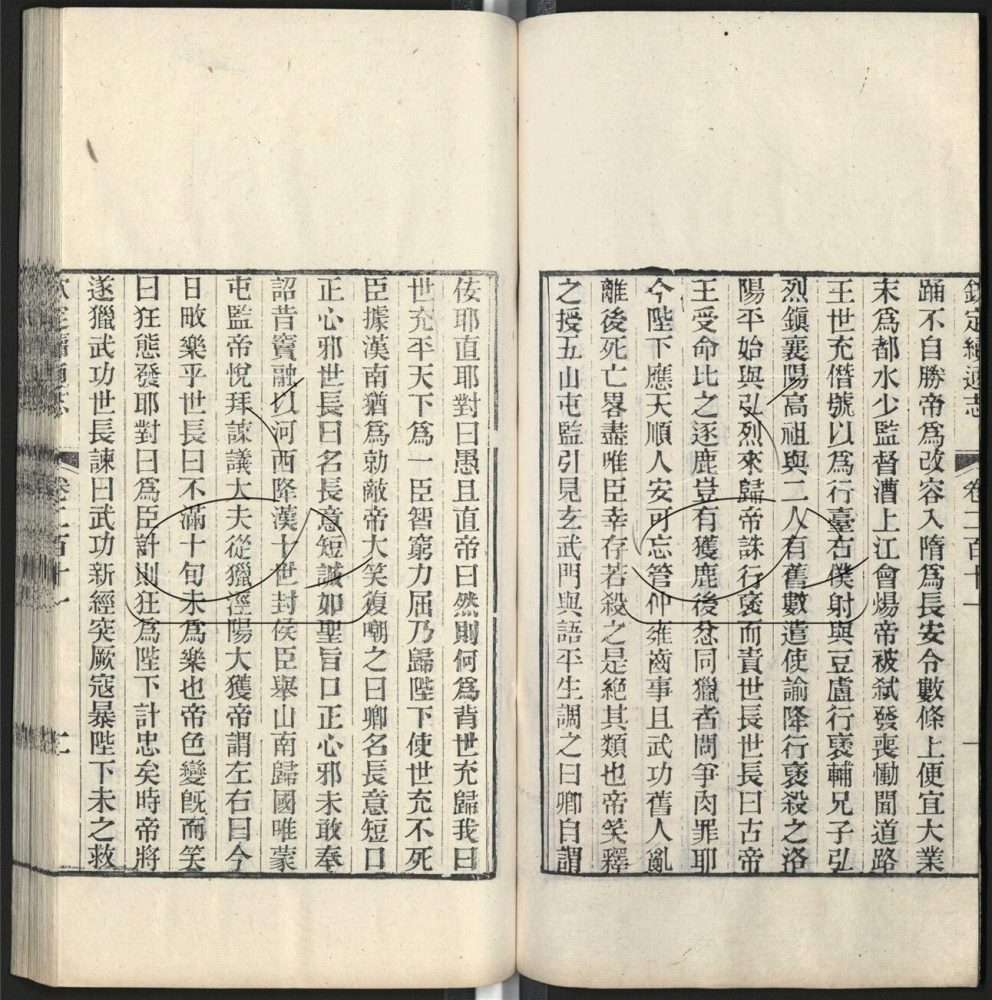 欽定續通志
卷二百十一
一
踊不自勝帝爲改容入隋爲長安令數條上便宜大業
末爲都水少監督漕上江會煬帝被弑發喪慟聞道路
王世充僭號以爲行臺右僕射與豆盧行褒輔兄子弘
烈鎮襄陽高祖與二人有舊數遣使諭降行褒殺之洛
陽平始與弘烈來歸帝誅行褒而責世長世長曰古帝
王受命比之逐鹿豈有獲鹿後忿同獵者問爭肉罪耶
今陛下應天順人安可忘管仲雍齒事且武功舊人亂
離後死亡畧盡唯臣幸存若殺之是絕其類也帝笑釋
之授五山屯監引見玄武門與語平生調之曰卿自謂
佞耶直耶對曰愚且直帝曰然則何爲背世充歸我曰
世充平天下爲一臣智窮力屈乃歸陛下使世充不死
臣據漢南猶爲勍敵帝大笑復嘲之曰卿名長意短口
正心邪世長曰名長意短誠如聖旨口正心邪未敢奉
詔昔竇融以河西降漢十世封侯臣舉山南歸國唯蒙
屯監帝悅拜諫議大夫從獵涇陽大獲帝謂左右曰今
日畋樂乎世長曰不滿十旬未爲樂也帝色變旣而笑
曰狂態發耶對曰爲臣計則狂爲陛下計忠矣時帝將
遂獵武功世長諫曰武功新經突厥寇暴陛下未之救
卷二百十一
二